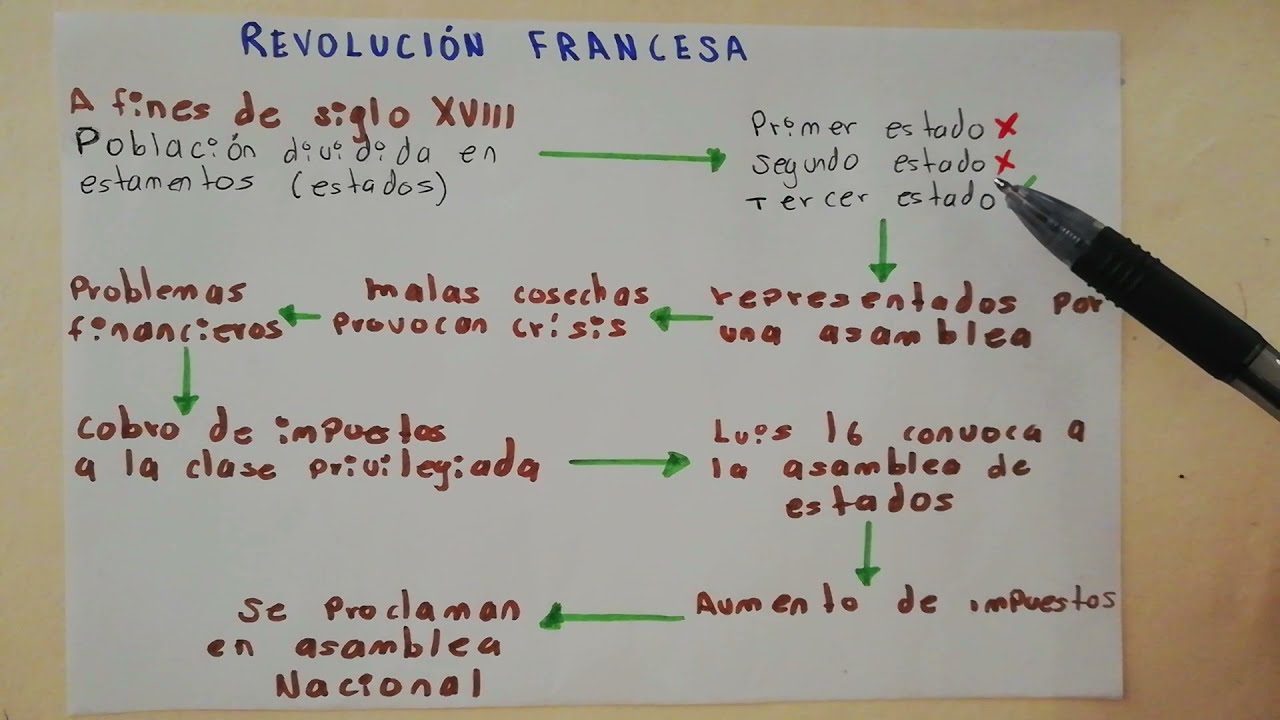 REVOLUCIÓN FRANCESA
A fines de siglo XVIII
Población dividida en
estamentos (estados)
Primer estado X
segundo estado X
Tercer estado
representados por
una asamblea
malas cosechas
provocan crisis
Problemas
financieros
Cobro de impuestos
a la clase privilegiada
Luis 16 convoca a
la asamblea de
estados
Aumento de impuestos
Se Proclaman
en asamblea
Nacional